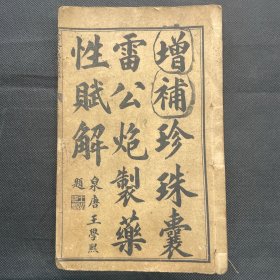 增補珍珠囊
雷公炮製藥
性賦解
泉唐王學熙題